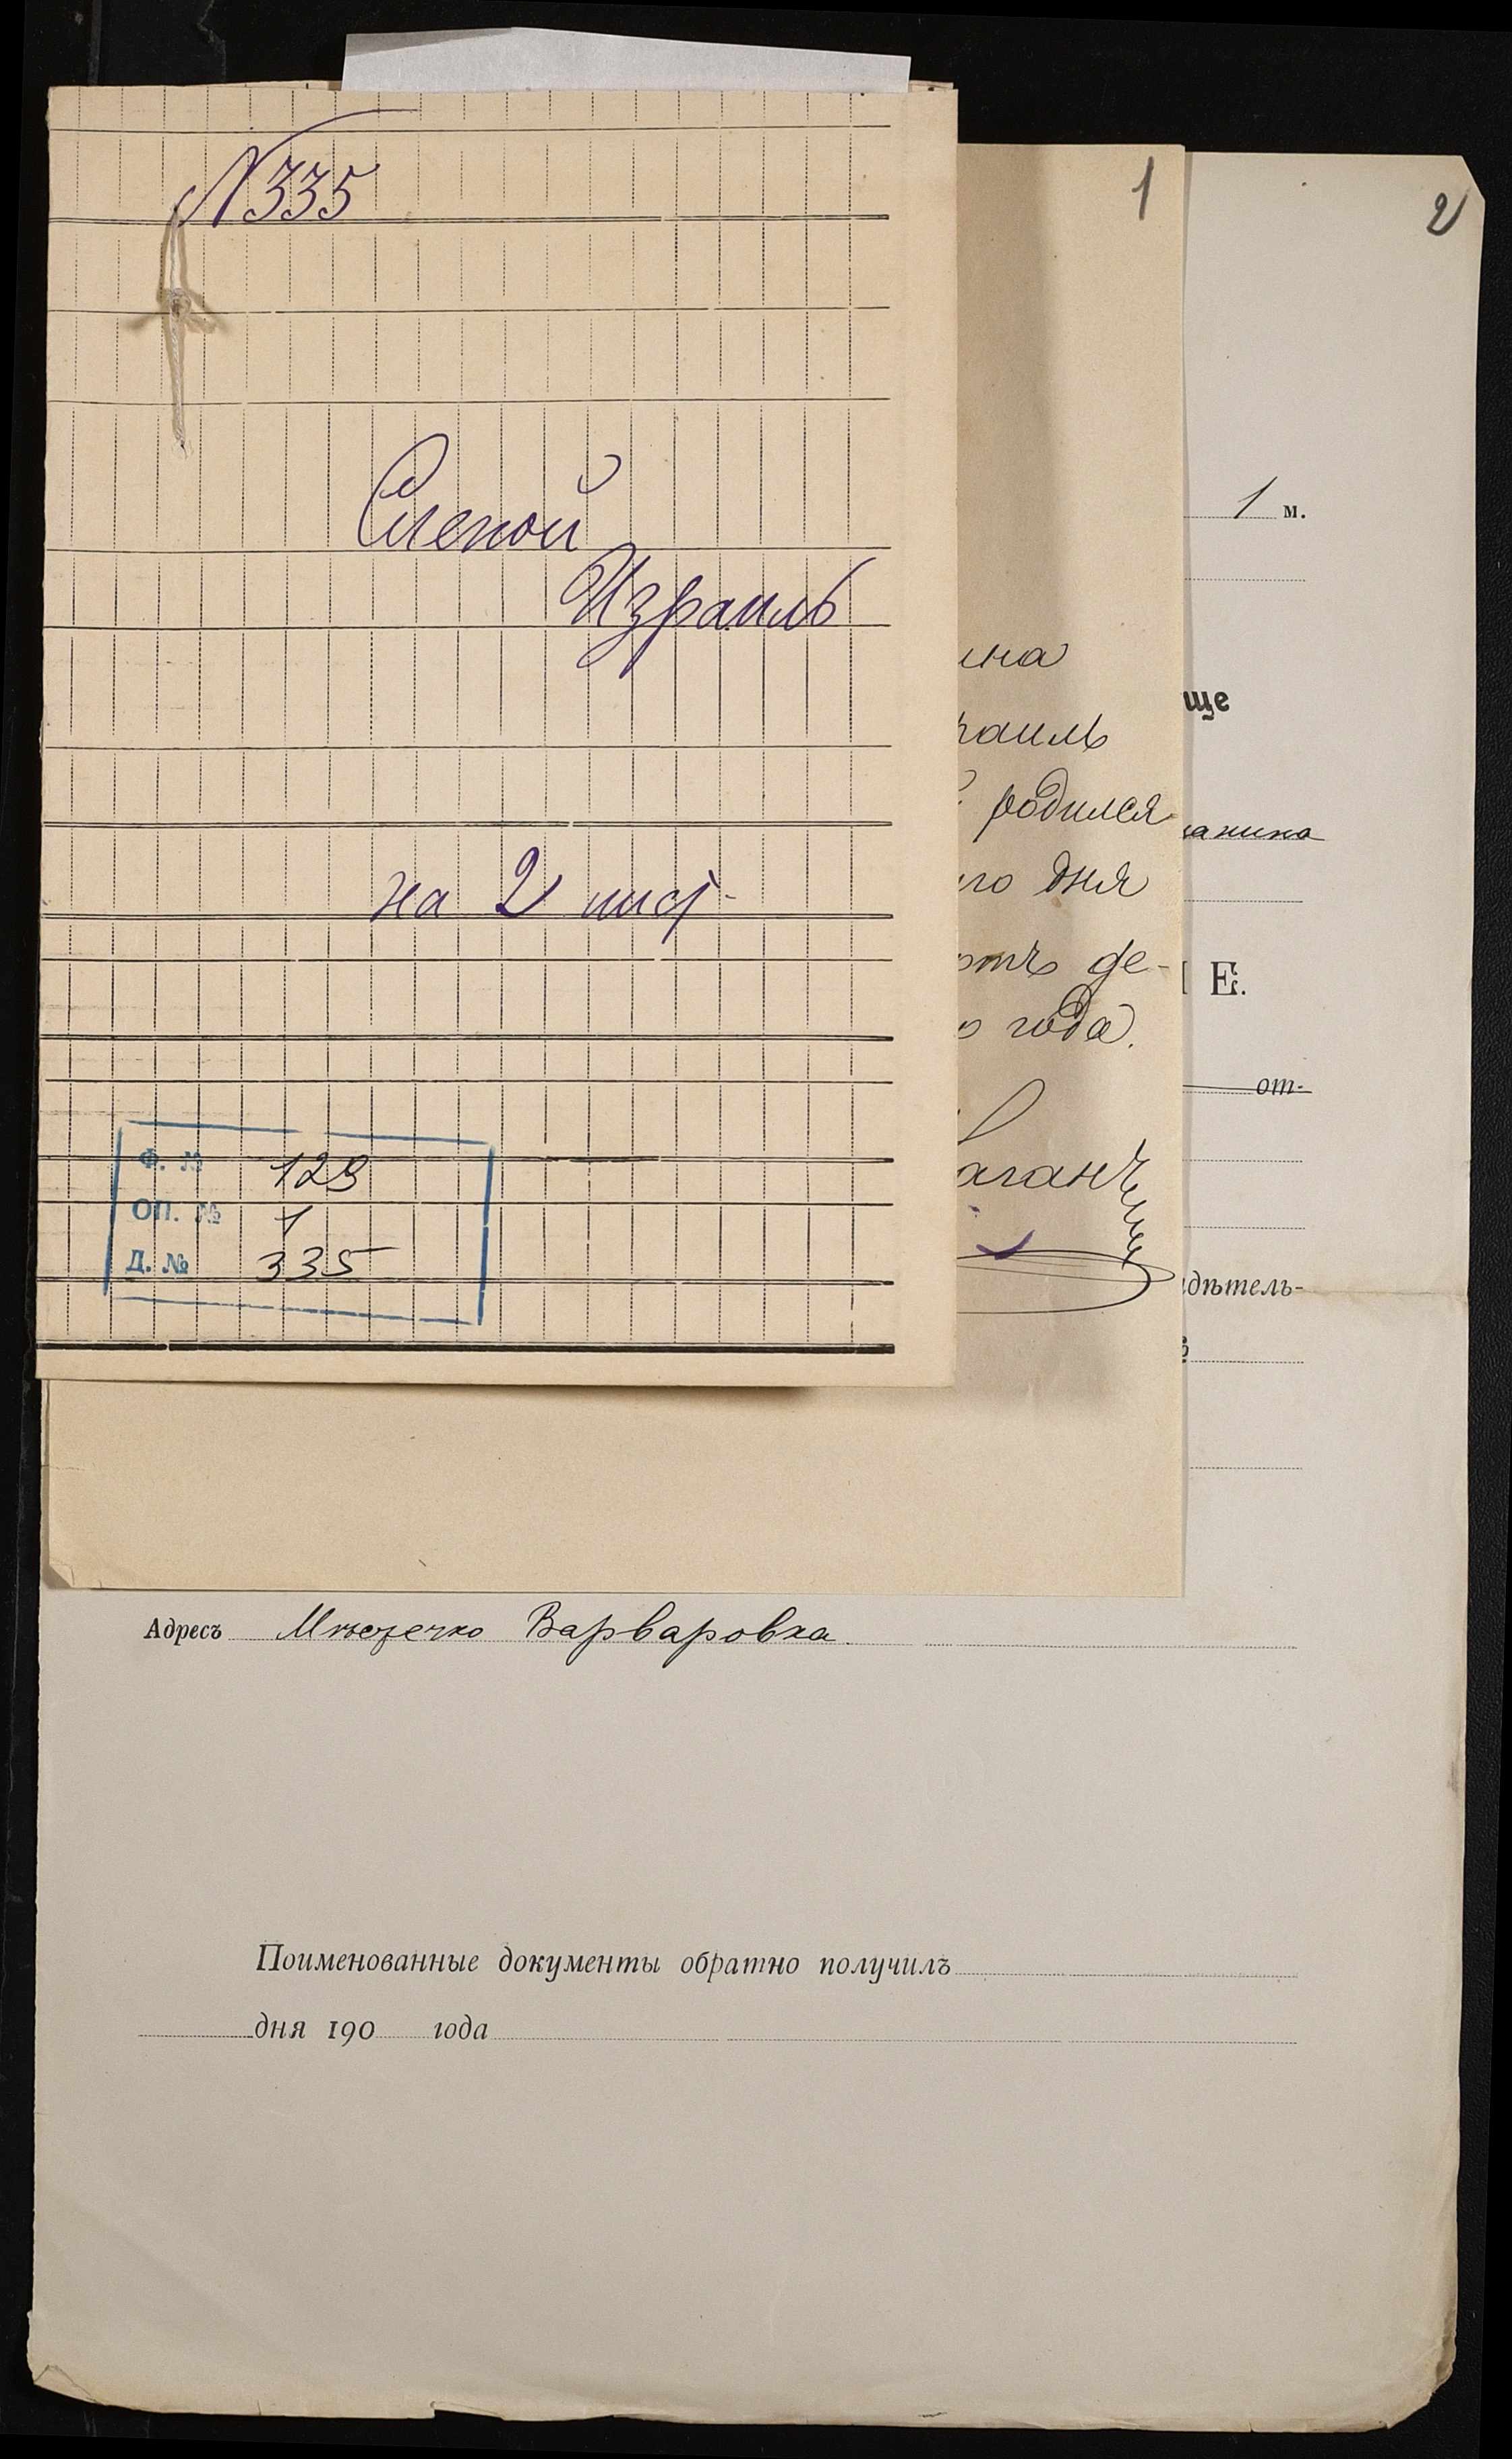 N 335
Слепой
Израиль
на 2 лист.
Ф. № 129
ОП. № 1
Д. № 335
1
ина
раиль
родился
го дня
отъ де-
о года.
Каганъ
2
1 м.
ще
анина
Е.
от-
дѣтель-
Адресъ Мѣстечко Варваровка
Поименованные документы обратно получилъ
дня 190 года